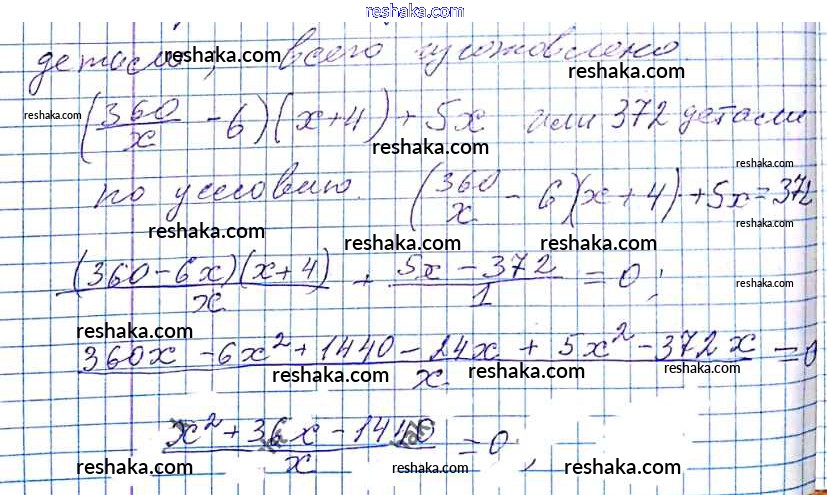 reshaka.com
деталей, всего изготовлено
reshaka.com
reshaka.com (360/x - 6)(x+4) + 5x или 372 детали
reshaka.com
reshaka.com
по условию. (360/x - 6)(x+4)+5x=372
reshaka.com
reshaka.com
(360-6x)(x+4)/x + 5x-372/1 = 0;
reshaka.com
reshaka.com
360x - 6x² + 1440 - 24x + 5x² - 372x/x = 0
reshaka.com reshaka.com reshaka.com
x² + 36x - 1440/x = 0,
reshaka.com reshaka.com reshaka.com